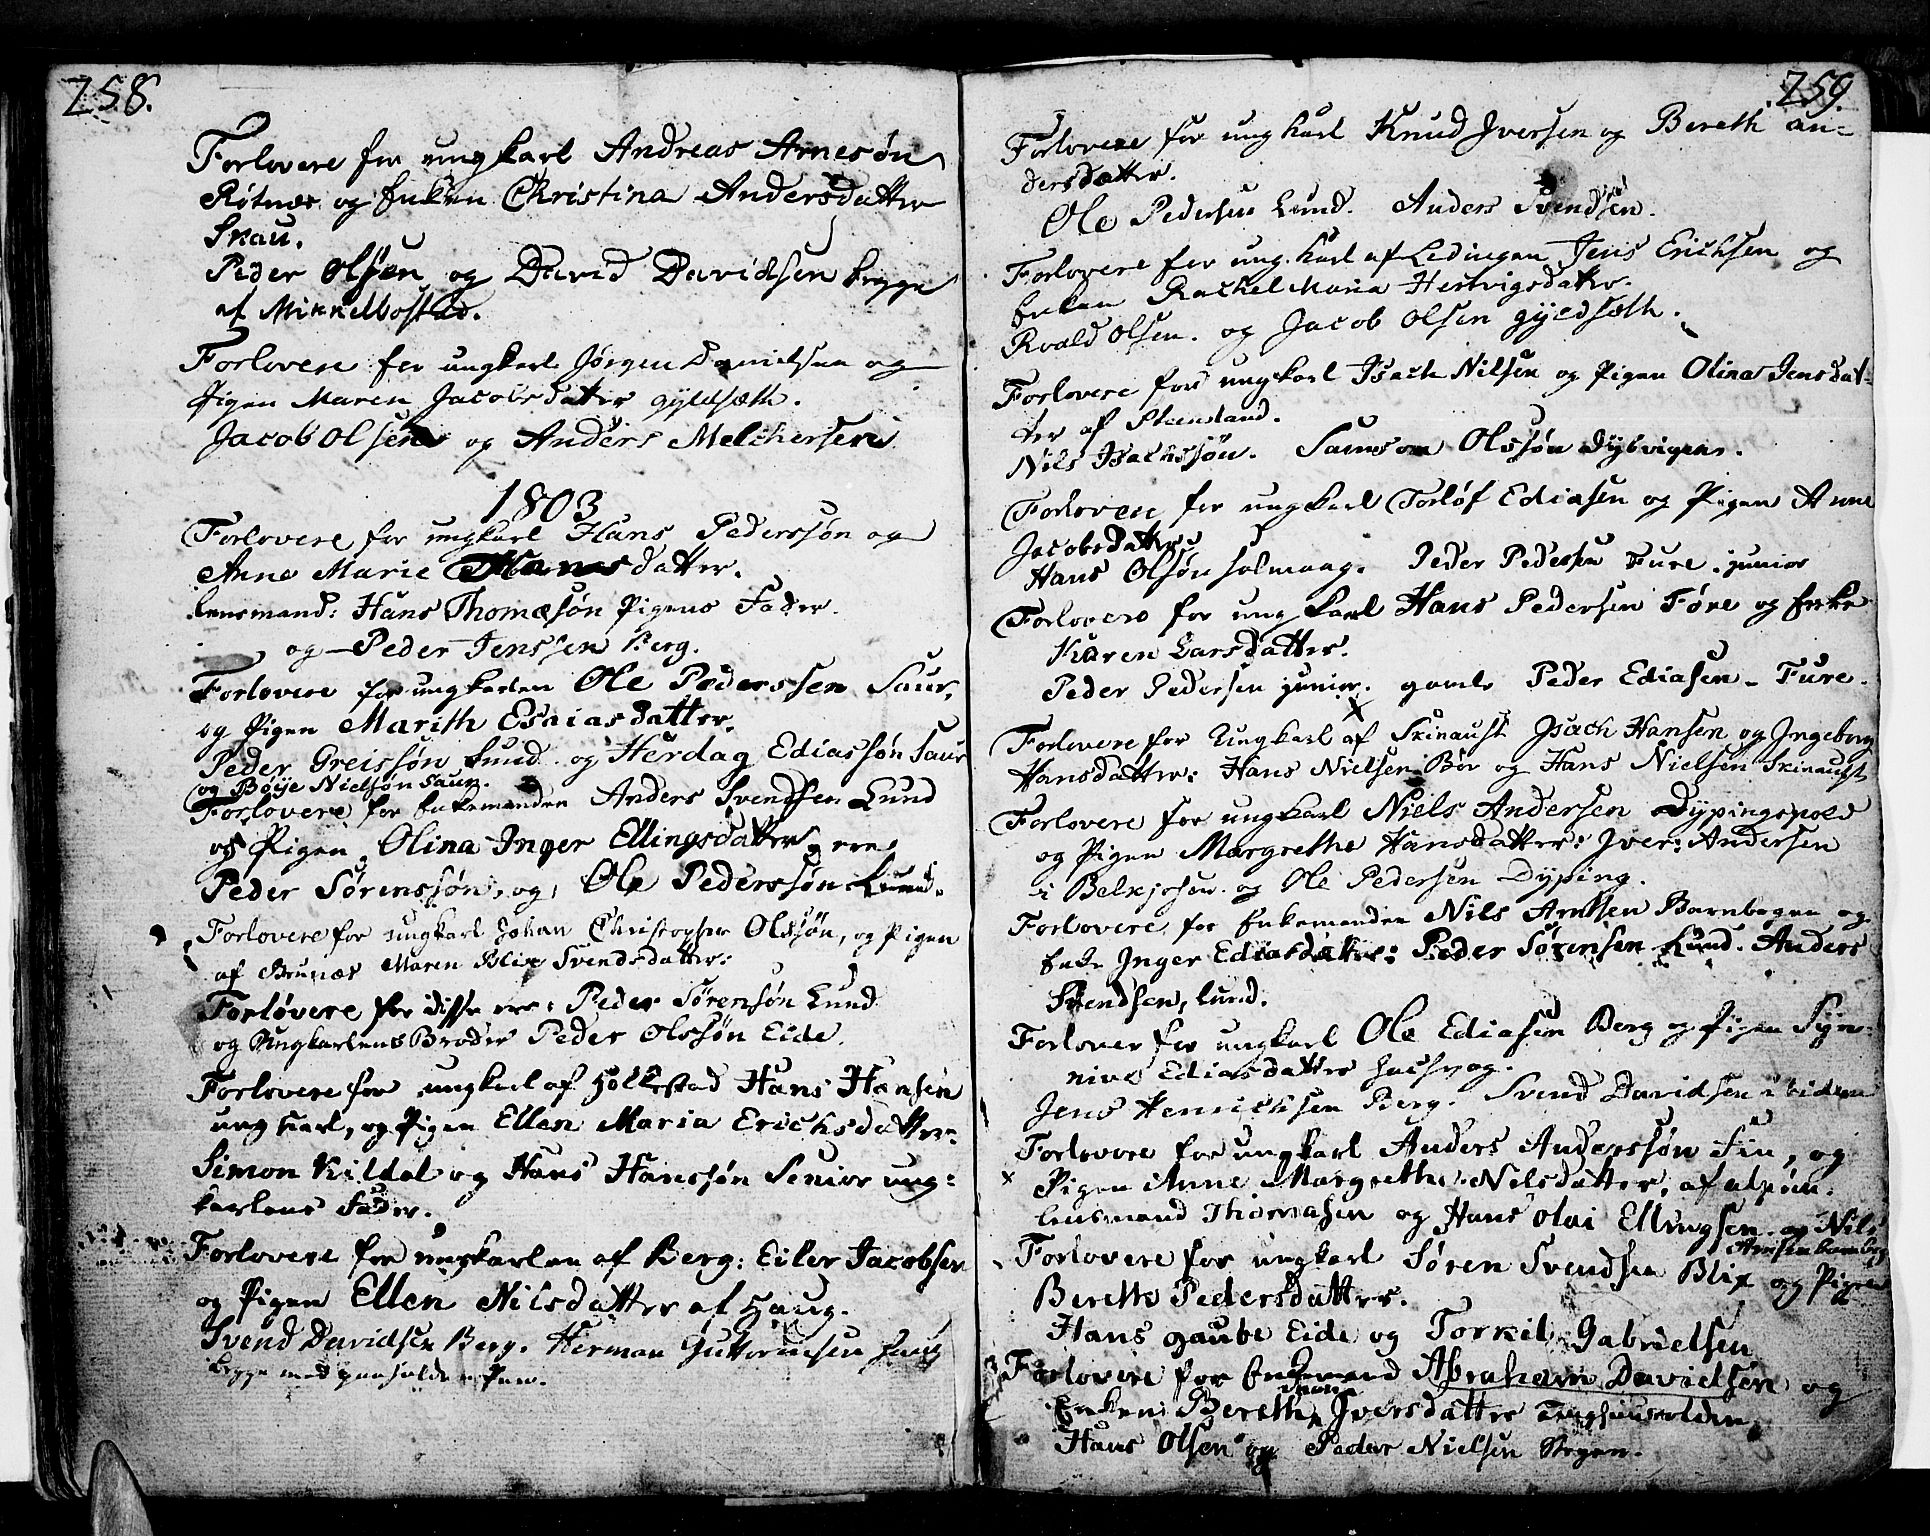 258.
Forlovere for ungkarl Andreas Arnesøn
Røtnær og Enken Christina Andersdatter
Skau.
Peder Olsen og David Davidsen begge
af Mikkelbostad.
Forlovere for ungkarl Jørgen Danielsen og
Pigen Maren Jacobsdatter gyldsæth.
Jacob Olsen og Anders Melchersen
1803
Forlovere for ungkarl Hans Pederssøn og
Anne Marie Hansdatter.
Lensmand: Hans Thomæsøn Pigens Fader.
og Peder Jenssen Berg.
Forlovere for ungkarlen Ole Pederssen Saur,
og Pigen Marith Esaiasdatter.
Peder Greissøn Lund og Herdag Ediassøn Saur
og Böye Nielsøn Saur.
Forlovere for Enkemanden Anders Svendsen Lund
og Pigen Olina Inger Ellingsdatter, ere
Peder Sörenssøn, og Ole Pederssøn Lund.
Forlovere for ungkarl Johan Christopher Olssøn, og Pigen
af Brunær Maren Blix Svendsdatter:
Forlovere for disse ere: Peder Sörensøn Lund
og Ungkarlens Broder Peder Olssøn Eide.
Forlovere for ungkarl af Holkestad Hans Hansen
ungkarl, og Pigen Ellen Maria Erichsdatter:
Simon Kildal og Hans Hanssøn Senior ung=
karlens Fader.
Forlovere for ungkarlen af Berg: Eiler Jacobsen
og Pigen Ellen Nilsdatter af Haug.
Svend Davidsen Berg. Herman Guttormsen Haug
begge med paaholden Pen.
259.
Forlovere for ungkarl Knud Iversen og Bereth An=
dersdatter.
Ole Pedersen Lund. Anders Svendsen.
Forlovere for ungkarl af Ledingen Jens Erichsen og
Enken Rachel Maria Hertvigsdatter.
Roald Olsen. og Jacob Olsen gyldsæth.
Forlovere for ungkarl Isach Nilsen og Pigen Olina Jensdat=
ter af Steenland.
Nils Isachssøn. Samson Olssøn Dybvigen.
Forlovere for ungkarl Torlöf Ediasen og Pigen Anne
Jacobsdatter
Hans Olsøn Holmaag. Peder Pedersen Fure junior
Forlovere for ungkarl Hans Pedersen Føre og Enke
Karen Larsdatter.
Peder Pedersen junior. gamle Peder Ediasen - Fure.
Forlovere for Ungkarl af Skinaust Isach Hansen og Ingeborg
Hansdatter: Hans Nielsen Bör og Hans Nielsen Skinaust
Forlovere for ungkarl Niels Andersen Dypingspold
og Pigen Margrethe Hansdatter: Iver: Andersen
i Belkjosen og Ole Pedersen Dyping.
Forlovere for Enkemanden Nils Arntsen Barnbogen og
Enke Inger Ediasdatter: Peder Sørensen Lund. Anders
Svendsen, Lund.
Forlover for ungkarl Ole Ediasen Berg og Pigen Syn=
nive Ediasdatter
Jens Henrichsen Berg. Svend Davidsen ibidem
Forlovere for ungkarl Anders Anderssøn Fin, og
Pigen Anne Margrethe Nelsdatter,
lensmand Thomasen og Hans Olai Ellingsen og Nils
Arntsen Barnbog
Forlovere for ungkarl Sören Svendsen Blix og Pigen
Bereth Pedersdatter.
Hans gaube Eide og Torkil Gabrielsen
Forlovere for Enkemand Abraham Davidsen og
Enken Bereth Iversdatter
Hans Olsen og Peder Nielsen